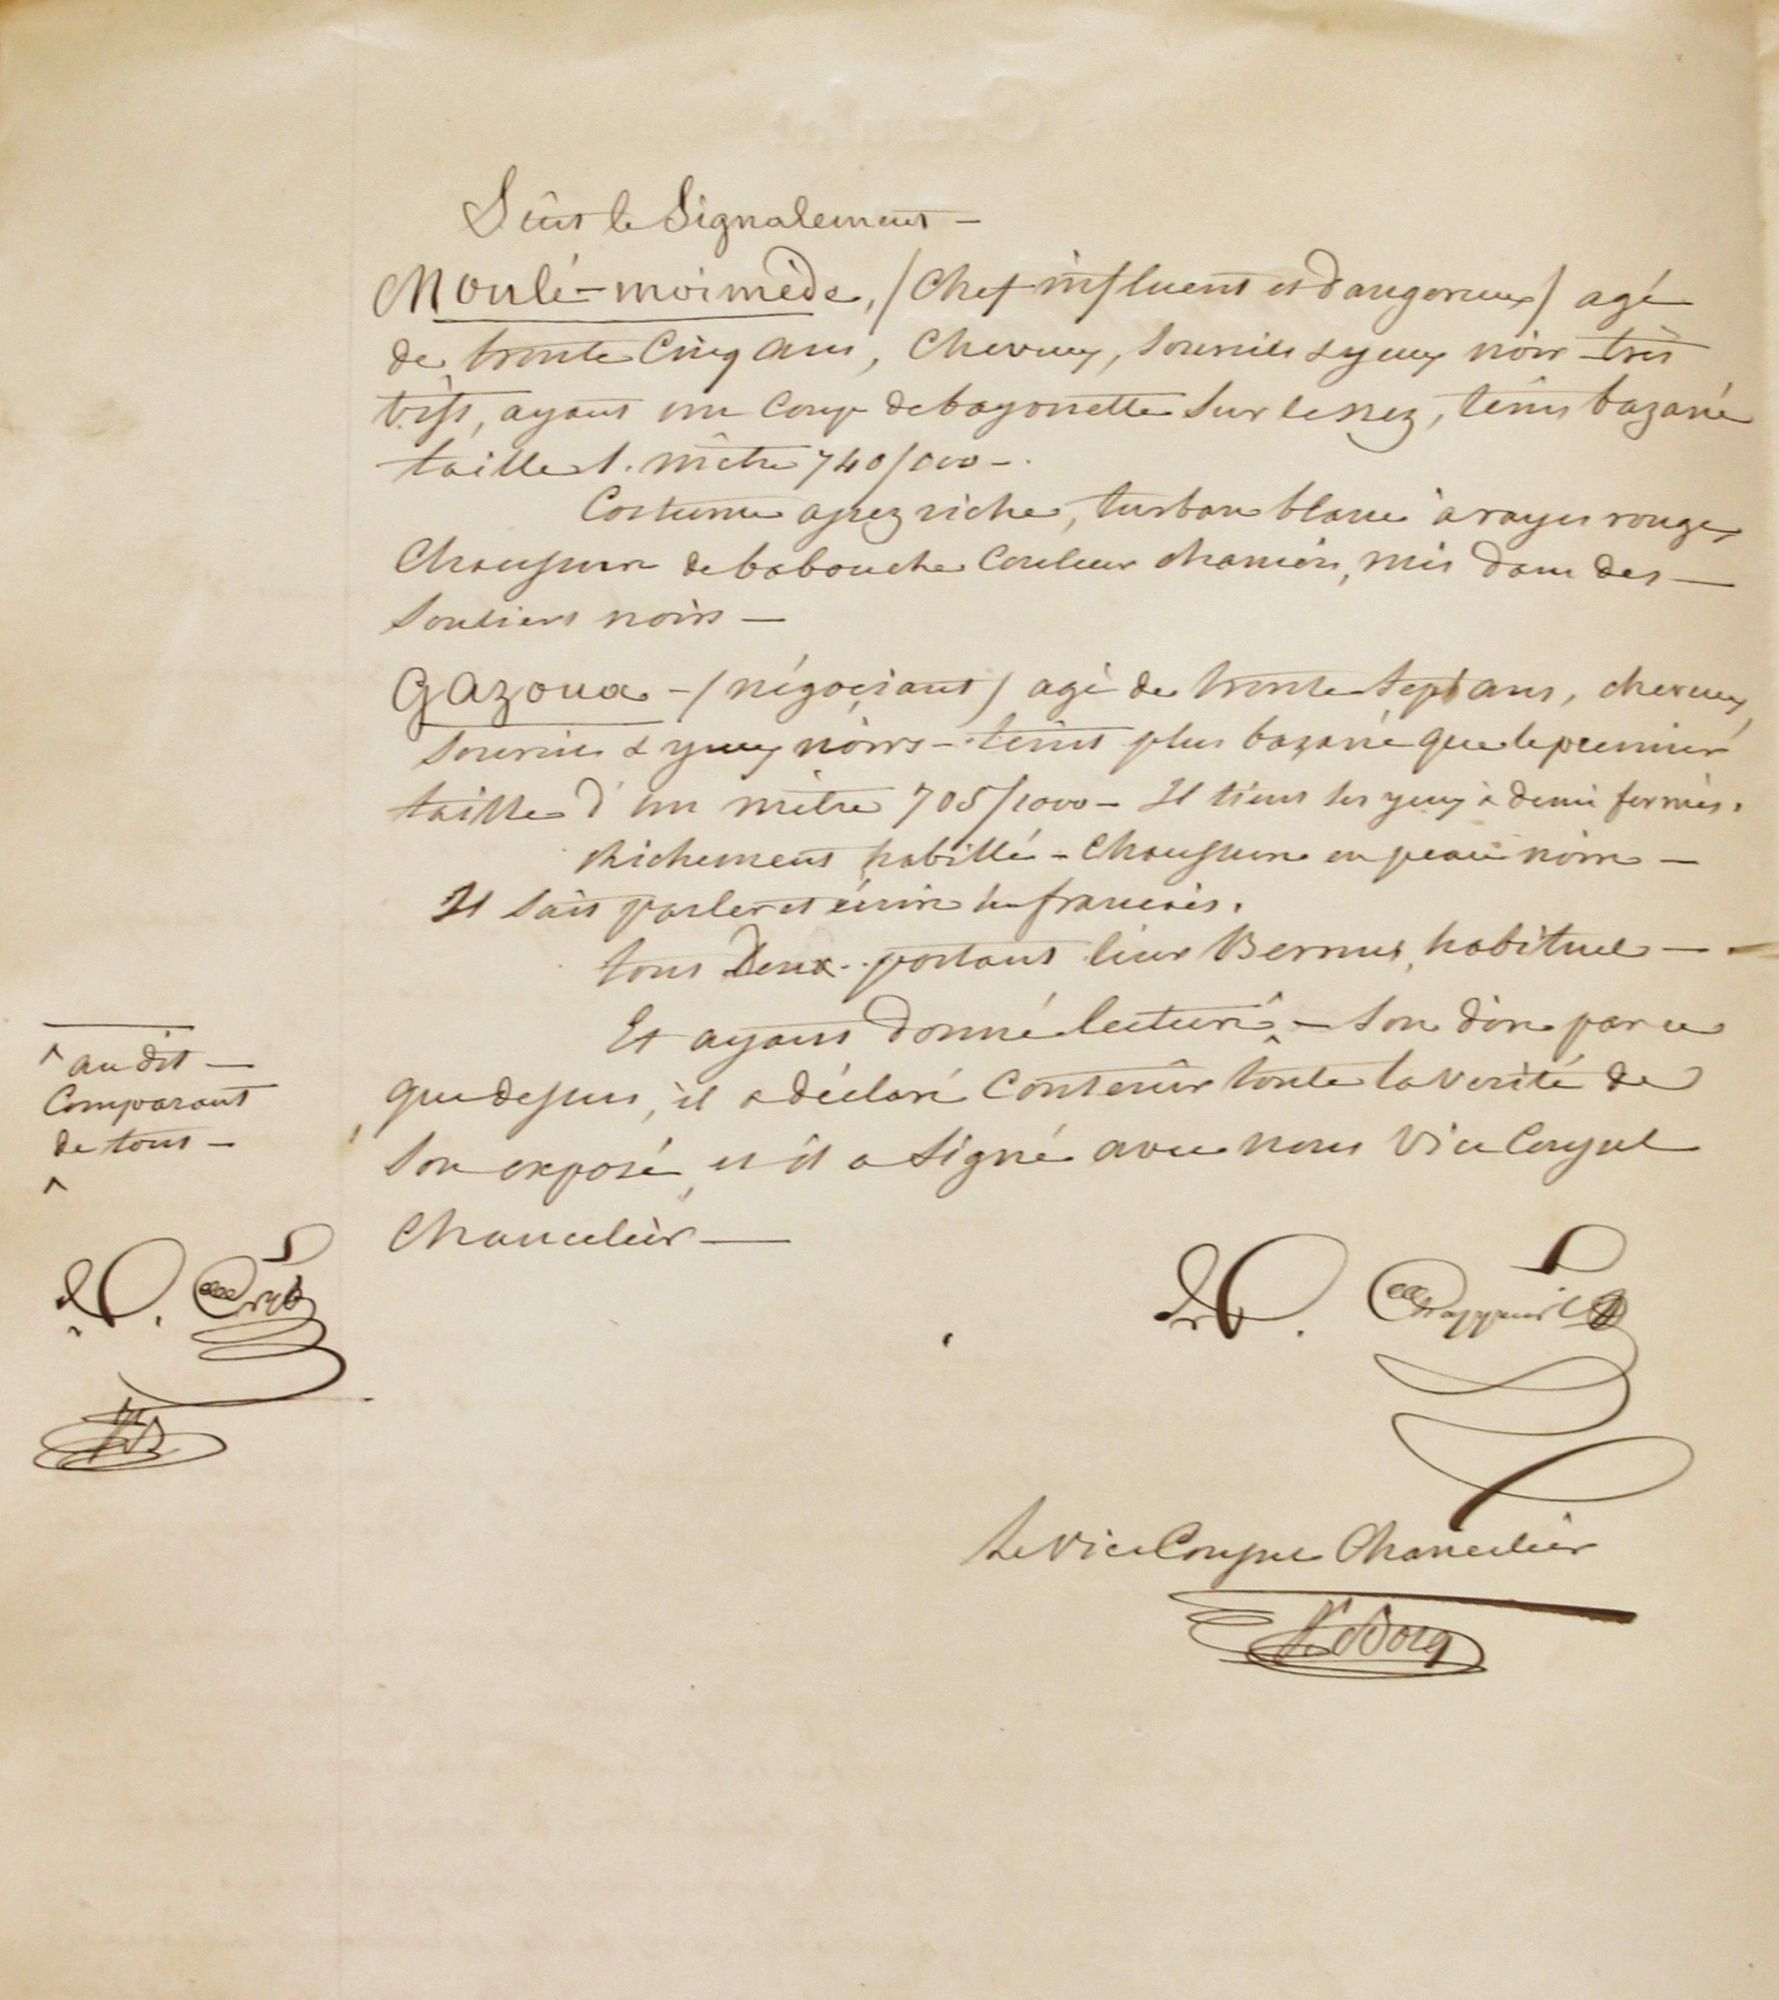 Suit le Signalement —
Moulé-moimède, / Chef influent et dangereux / agé
de trente cinq ans, cheveux, sourcils & yeux noir très
vifs, ayant un coup de bayonette sur le nez, teint bazané
taille 1. mètre 740/000 —.
Costume assez riche, turban blanc à rayes rouges
Chaussure de babouche couleur chamois, mis dans des —
souliers noirs —
Gazoua — / négoçiant / agé de trente sept ans, cheveux,
sourcils & yeux noirs — teint plus bazané que le premier
taille d'un mètre 705/1000 — Il tient les yeux à demi fermés.
Richement habillé — Chaussure en peau noire —
Il sait parler et écrire le français.
tous Deux portant leur Bernus habituel —
Et ayant donné lecture ^ — son dire par ce
que dessus, il a déclaré contenir toute la verité de
son exposé, et il a signé avec nous Vice Consul
Chancelier —
^ au dit —
Comparant
de tout —
^
Le Vice Consul Chancelier